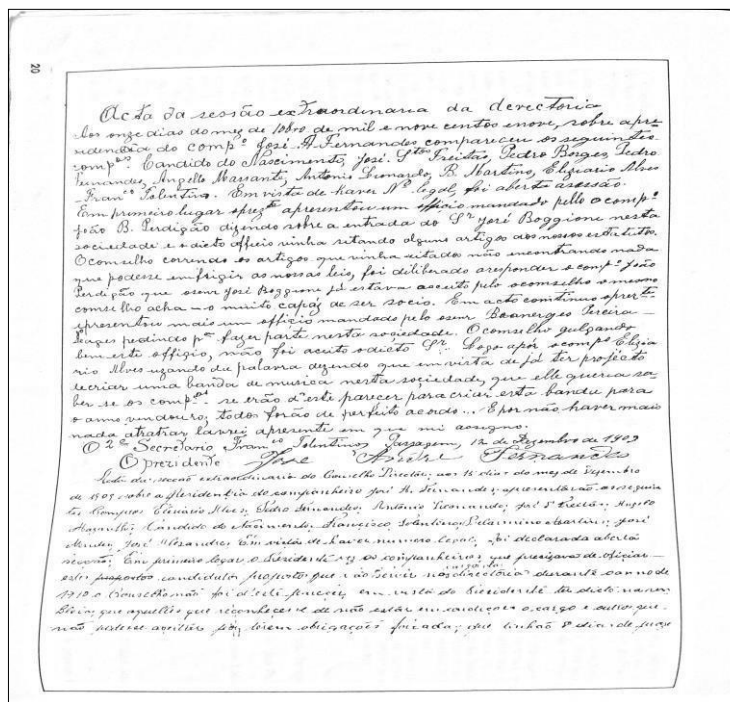 20
Acta da sessão extraordinaria da derectoria
Aos onze dias do mez de 10bro de mil e nove centos e nove, sobre a pre
sidencia do compº José A. Fernandes compareceu os seguintes
compºs Candido do Nascimento, José Stos Freitas, Pedro Borges, Pedro
Fernandes, Angello Massante, Antonio Leonardo, B. Martino, Eliziario Alves
Franco Tolentino. Em vista de haver Nº legal, foi aberta a sessão.
Em primeiro lugar o prezte apresentou um officio mandado pello o compº
João B. Perdigão dizendo sobre a entrada do Snr José Boggione nesta
sociedade e o dicto officio vinha sitando alguns artigos dos nossos estatutos.
O conselho correndo os artigos que vinha sitados não encontrando nada
que podesse emfrigir as nossas leis, foi deliberado a responder o compº João
Perdigão que o senr José Boggione já estava aceito pelo o conselho o mesmo
conselho acha-o muito capáz de ser socio. Em acto continuo o prezte
apresentou mais um officio mandado pelo o senr Boanerges Pereira
pedindo pª fazer parte nesta sociedade. O conselho gulgando
bem este offigio, não foi aceito o dicto Snr. Logo apóz o compº Elizia
rio Alves uzando da palavra dizendo que em vista de já ter projécto
de criar uma banda de musica nesta sociedade, que elle queria sa
ber se os compºs se erão d'este parecer para criar esta banda para
o anno vendouro, todos forão de perfeito acordo. E por não haver mais
nada a tratrar lavrei a presente em que mi assigno.
O 2º Secretario Franco Tolentino, Passagem, 12 de Dezembro de 1909
O prezidente José André Fernandes
Acta da secção extraordinaria do Conselho Director, aos 15 dias do mez de Dezembro
de 1909 sobre a Presidentia do companheiro José A. Fernandes; apresentarão os seguin
tes Compros Eliziário Alves, Pedro Fernandes, Antônio Leonando, José S. Freitas, Angelo
Candido do Nascimento, Francisco Tolentino, Belarmino Martins, José
Mendes, José Alexandre. Em vista de haver numero legal, foi declarada aberta
secção. Em primeiro logar o Presidente fez os companheiros que precizava de oficiar
estes propostos candidatos proposto que vão servir na directoria durante o anno de
1910 o Conselho não foi d'este parecer em vista do Presidente ter dicto na
que aquelles que reconhecesse de não estar em condições o cargo e
não podesse aceitar por terem obrigações que tinhão 8 dias de